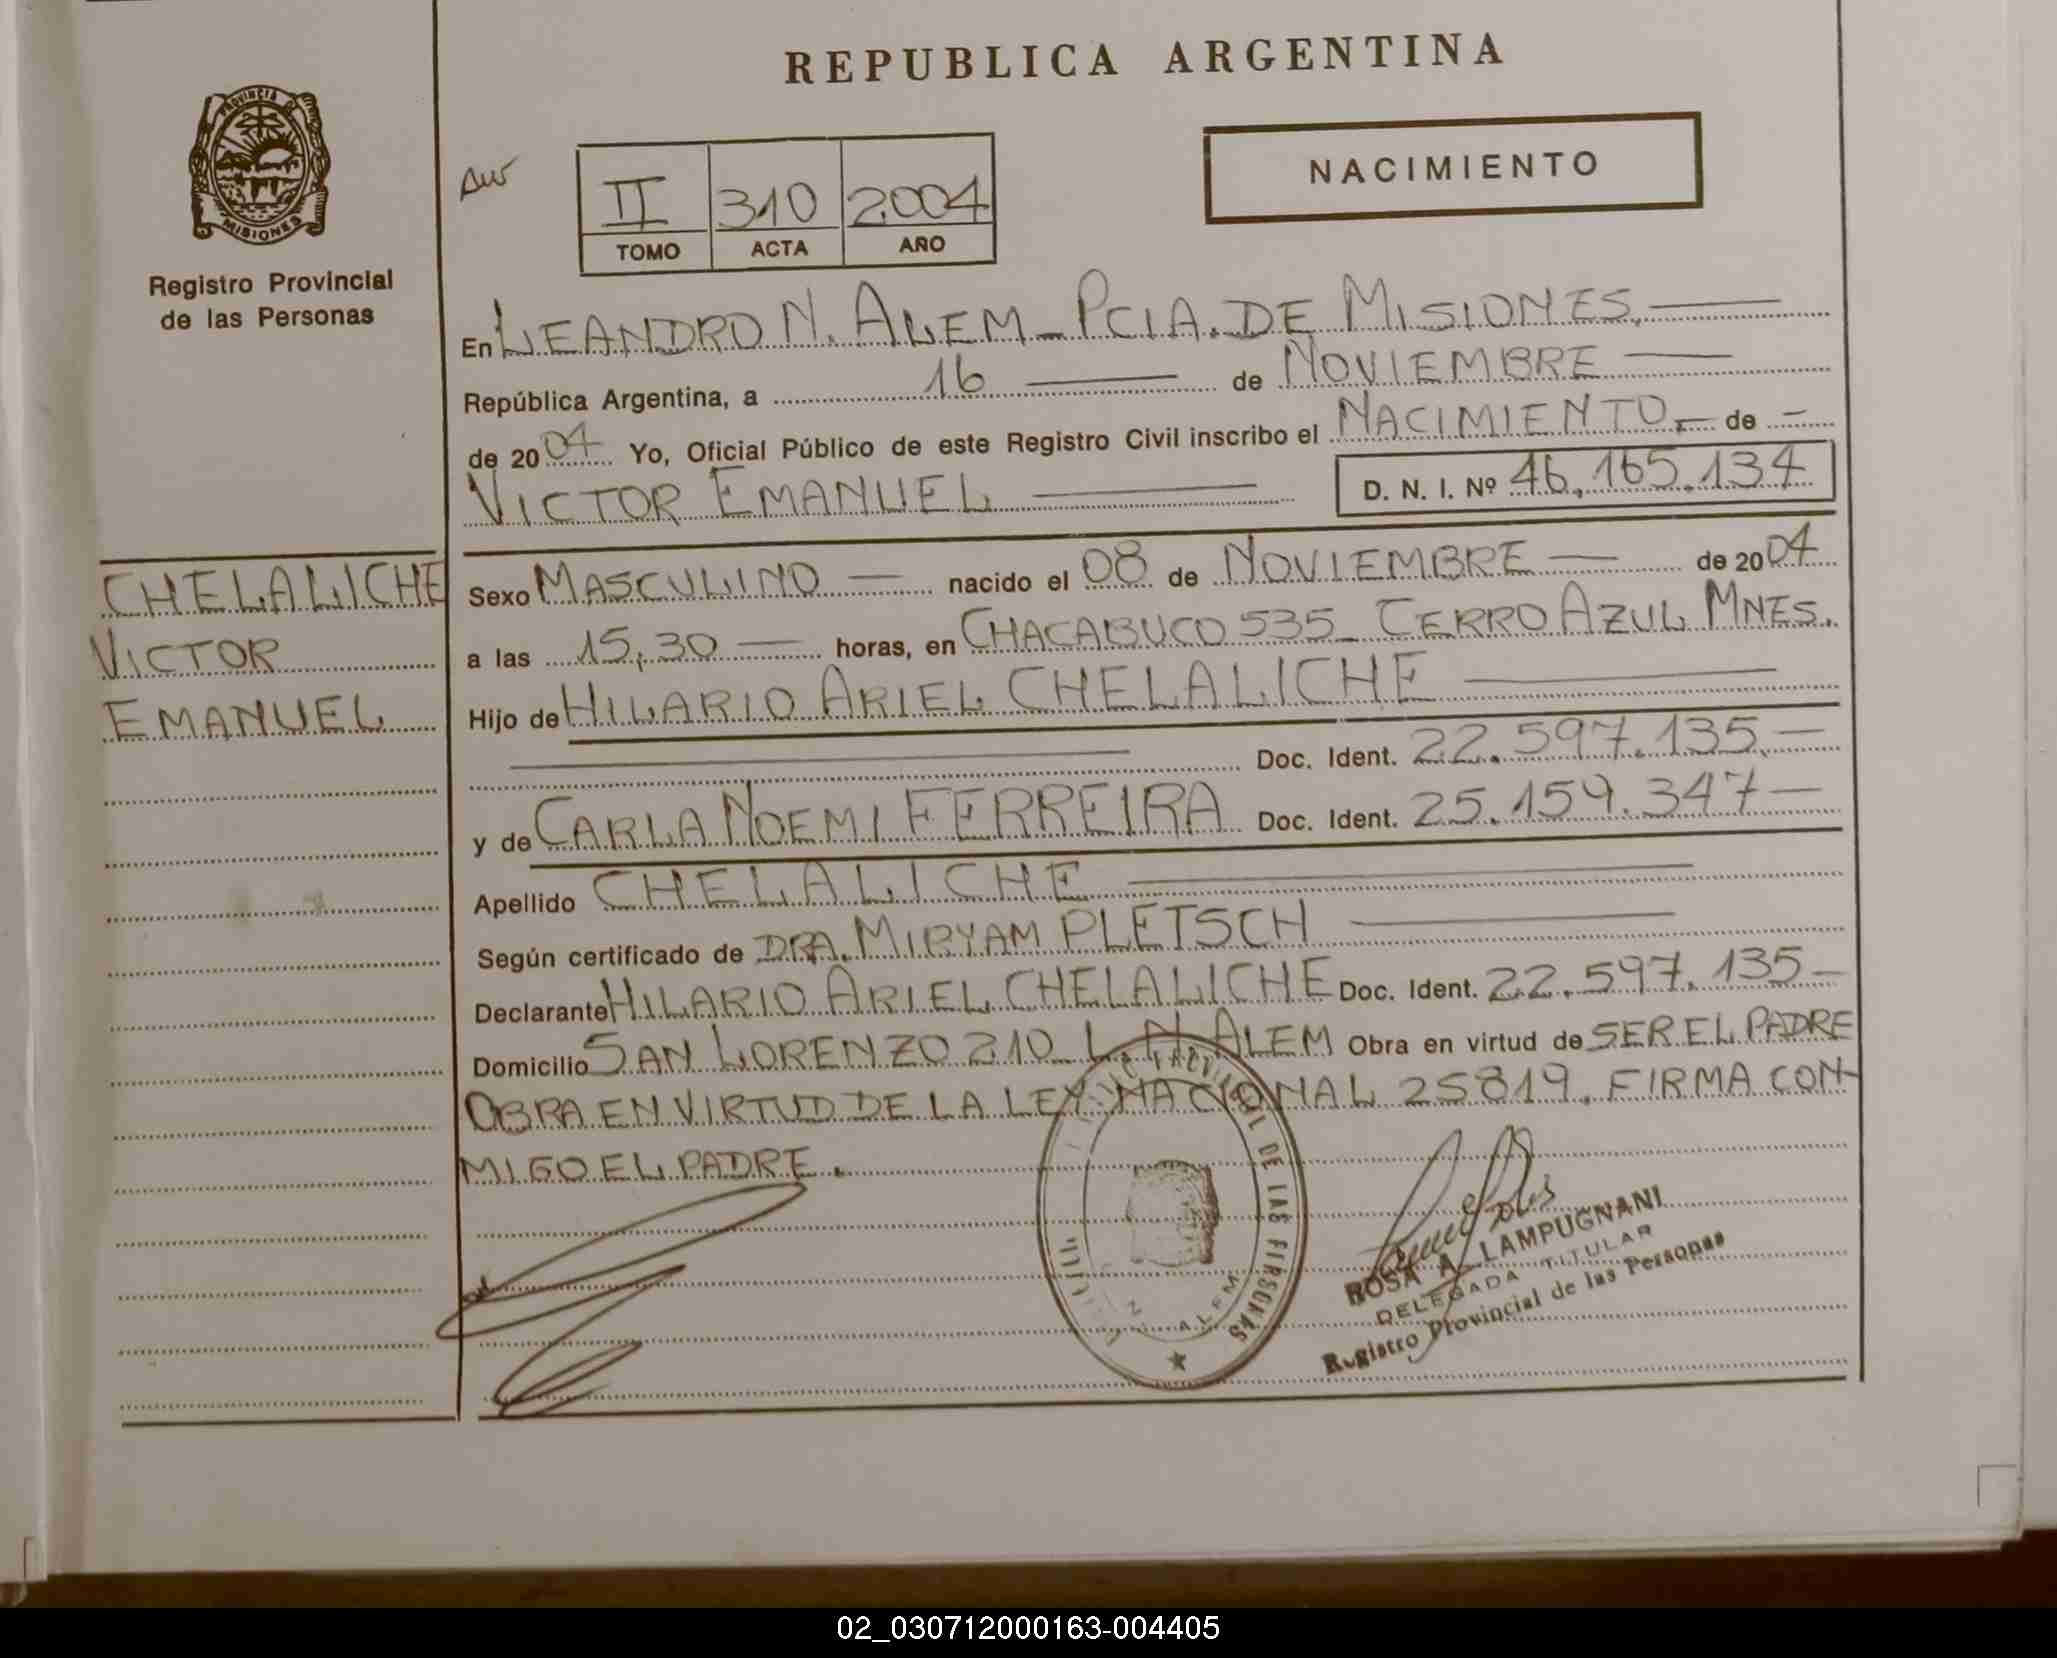 REPUBLICA ARGENTINA
PROVINCIA
MISIONES
Registro Provincial
de las Personas
II 310 2004
TOMO ACTA AÑO
NACIMIENTO
En LEANDRO N. ALEM_ PCIA. DE MISIONES.
República Argentina, a 16 de NOVIEMBRE
de 2004 Yo, Oficial Público de este Registro Civil inscribo el NACIMIENTO.- de -
VICTOR EMANUEL D. N. I. Nº 46.165.134
CHELALICHE
VICTOR
EMANUEL
Sexo MASCULINO — nacido el 08 de NOVIEMBRE — de 2004
a las 15,30 — horas, en CHACABUCO 535_ CERRO AZUL MNES.
Hijo de HILARIO ARIEL CHELALICHE
Doc. Ident. 22.597.135.—
y de CARLA NOEMI FERREIRA Doc. Ident. 25.159.347—
Apellido CHELALICHE
Según certificado de DRA. MIRYAM PLETSCH
Declarante HILARIO ARIEL CHELALICHE Doc. Ident. 22.597.135—
Domicilio SAN LORENZO 210_ L. N. ALEM Obra en virtud de SER EL PADRE
OBRA EN VIRTUD DE LA LEY NACIONAL 25819. FIRMA CON-
MIGO EL PADRE.
DE LAS PERSONAS
N. ALEM
ROSA A. LAMPUGNANI
DELEGADA TITULAR
Registro Provincial de las Personas
02_030712000163-004405